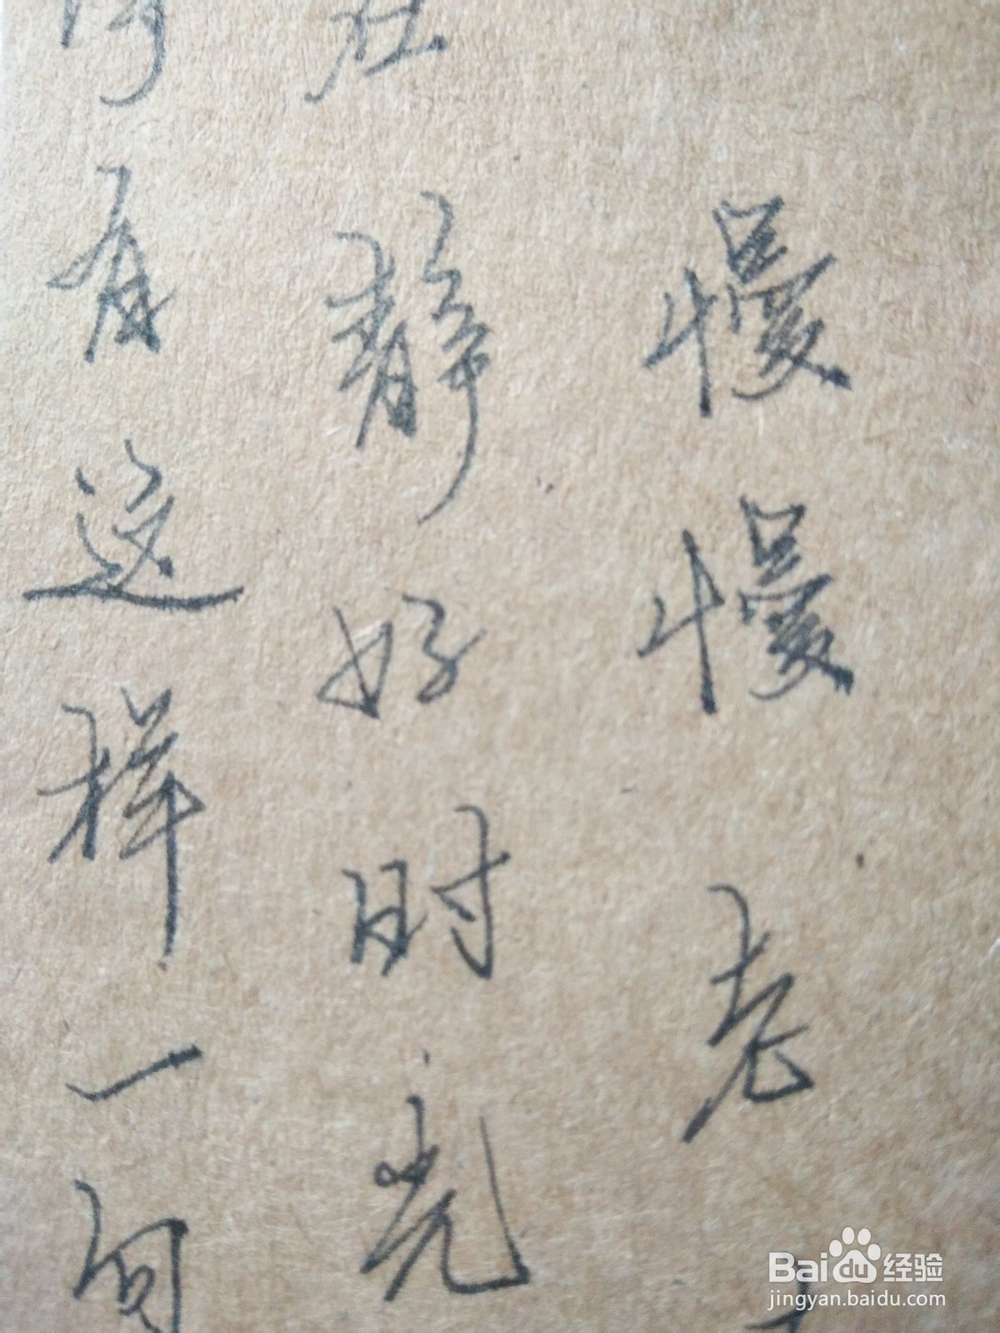 慢慢老
在静好时光
有这样一句
Bai度经验
jingyan.baidu.com